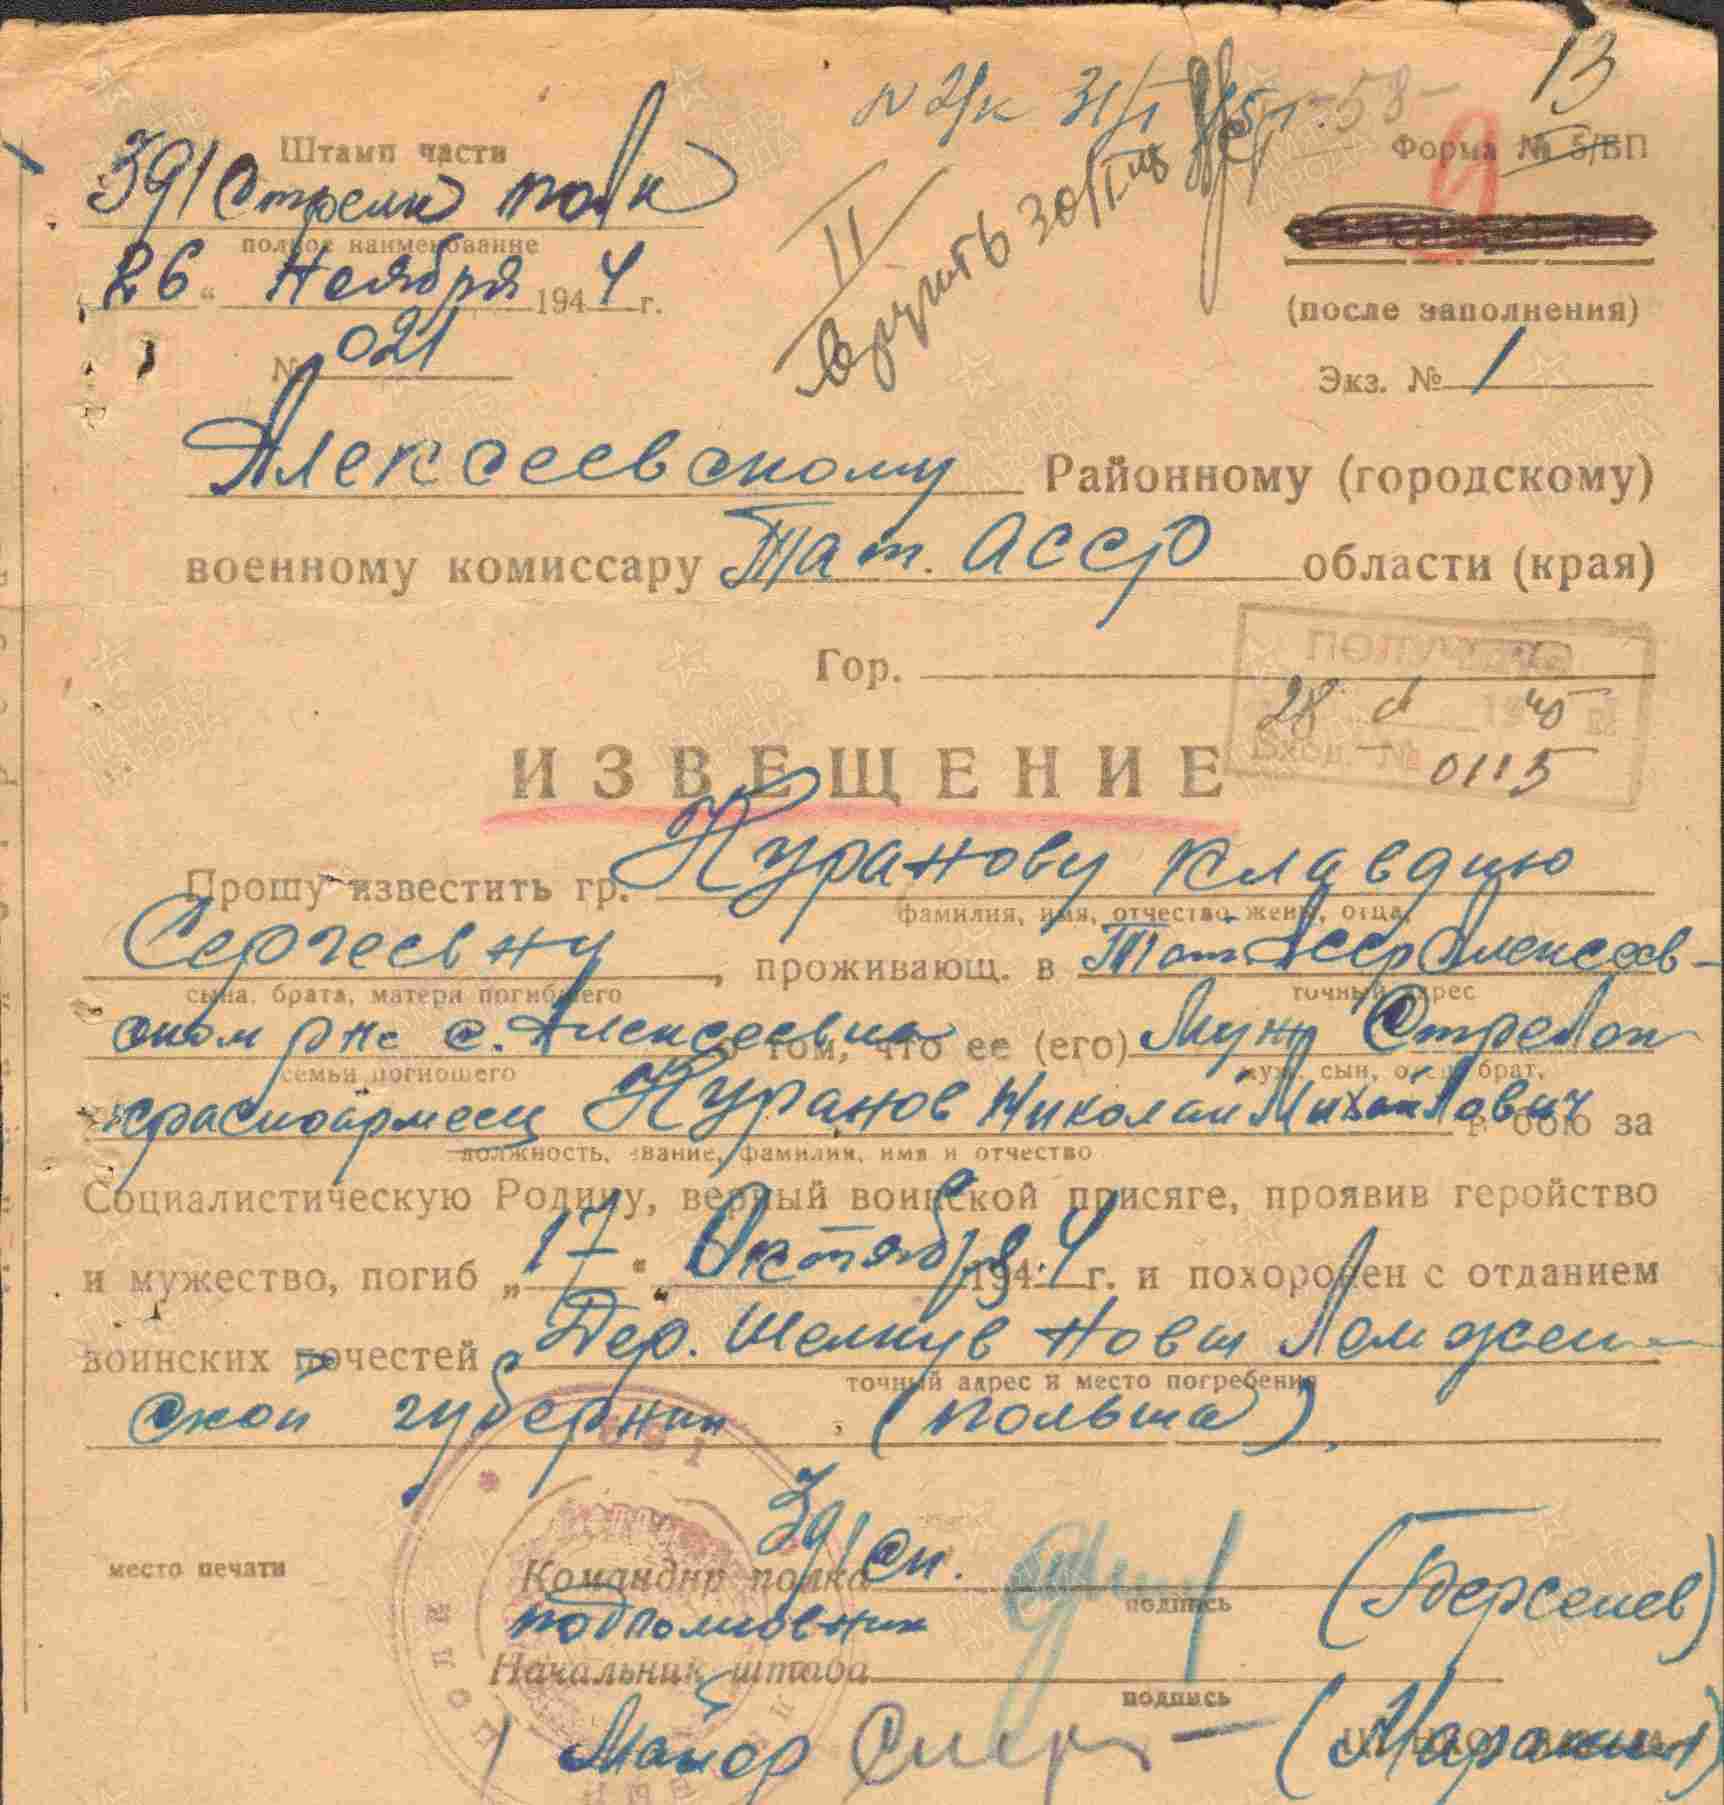 13
Штамп части
Форма № 5/БП
391 Стрелк полк
полное наименование
26 " Ноября 1944 г.
(после заполнения)
№ 021
Экз. № 1
II
Вручить 30/I
Алексеевскому Районному (городскому)
военному комиссару Тат. АССР области (края)
Гор.
ПОЛУЧЕНО
28 45
Вход. № 0115
ИЗВЕЩЕНИЕ
Прошу известить гр. Куранову Клавдию
фамилия, имя, отчество жены, отца,
Сергеевну, проживающ. в Тат. Асср Алексеев-
сына, брата, матери погибшего точный адрес
ском р не с. Алексеевка о том, что ее (его) Муж Стрелок
семьи погибшего муж, сын, отец, брат,
красноармеец Куранов Николай Михайлович в бою за
должность, звание, фамилия, имя и отчество
Социалистическую Родину, верный воинской присяге, проявив геройство
и мужество, погиб „17" Октября 1944 г. и похоронен с отданием
воинских почестей Дер. Новы Ломжен-
точный адрес и место погребения
ской губернии, (Польша).
391 сп.
место печати
Командир полка
подпись
подполковник (Берсенев)
Начальник штаба
подпись
Майор